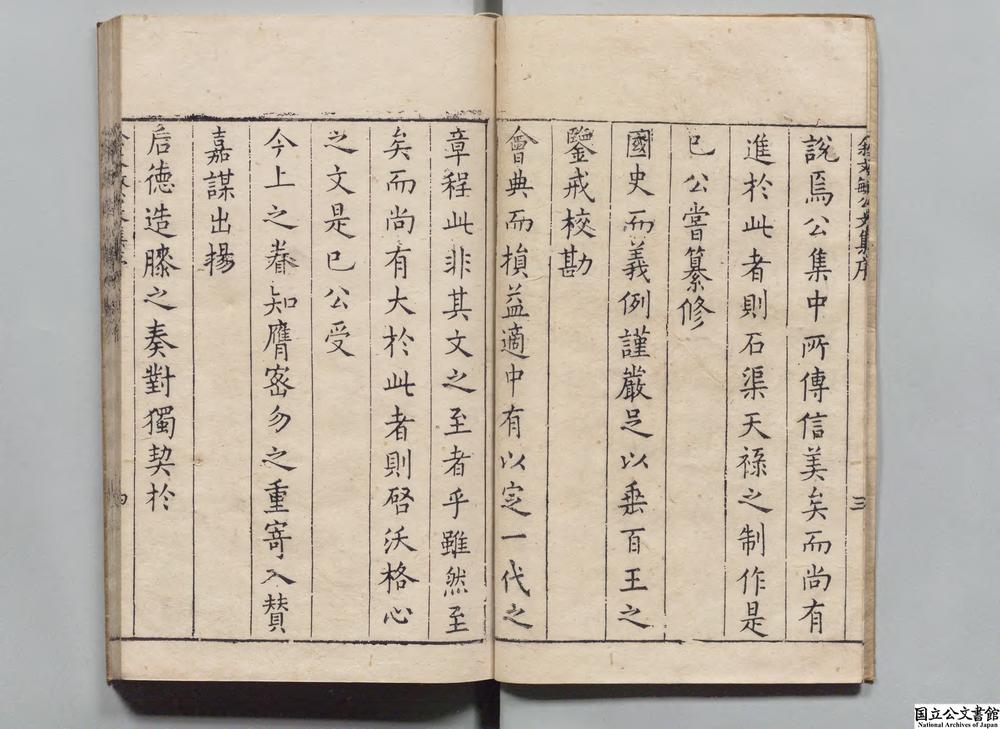 余文敏公文集序 三
說焉公集中所傳信美矣而尚有
進於此者則石渠天祿之制作是
已公嘗纂修
國史而義例謹嚴足以垂百王之
鑒戒校勘
會典而損益適中有以定一代之
章程此非其文之至者乎雖然至
矣而尚有大於此者則啓沃格心
之文是已公受
今上之眷知膺密勿之重寄入贊
嘉謀出揚
后德造膝之奏對獨契於
四
国立公文書館
National Archives of Japan